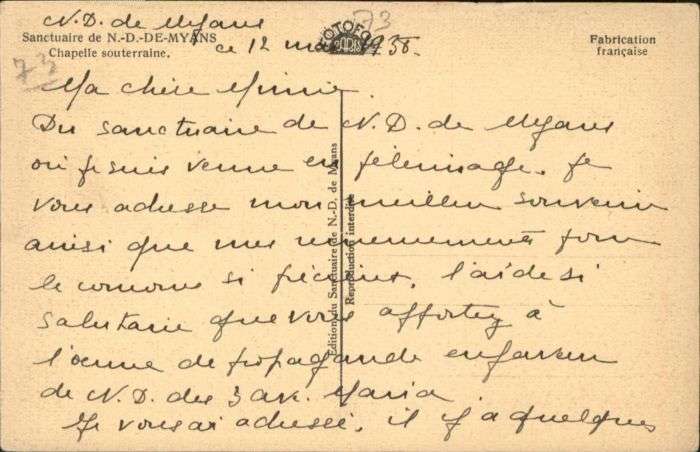 N.D. de Myans
73
Sanctuaire de N.-D.-DE-MYANS
Chapelle souterraine.
ce 12 mai 1936.
FOTOFO
PARIS
Fabrication
française
73
Ma chère Mimie.
Du sanctuaire de N.D. de Myans
où je suis venue en pèlerinage. je
vous adresse mon meilleur souvenir
ainsi que mes remerciements pour
le concours si précieux, l'aide si
salutaire que vous apportez à
l'œuvre de propagande en faveur
de N.D. des 3 Ave. Maria.
Je vous ai adressé, il y a quelques
Edition du Sanctuaire de N.-D. de Myans
Reproduction interdite